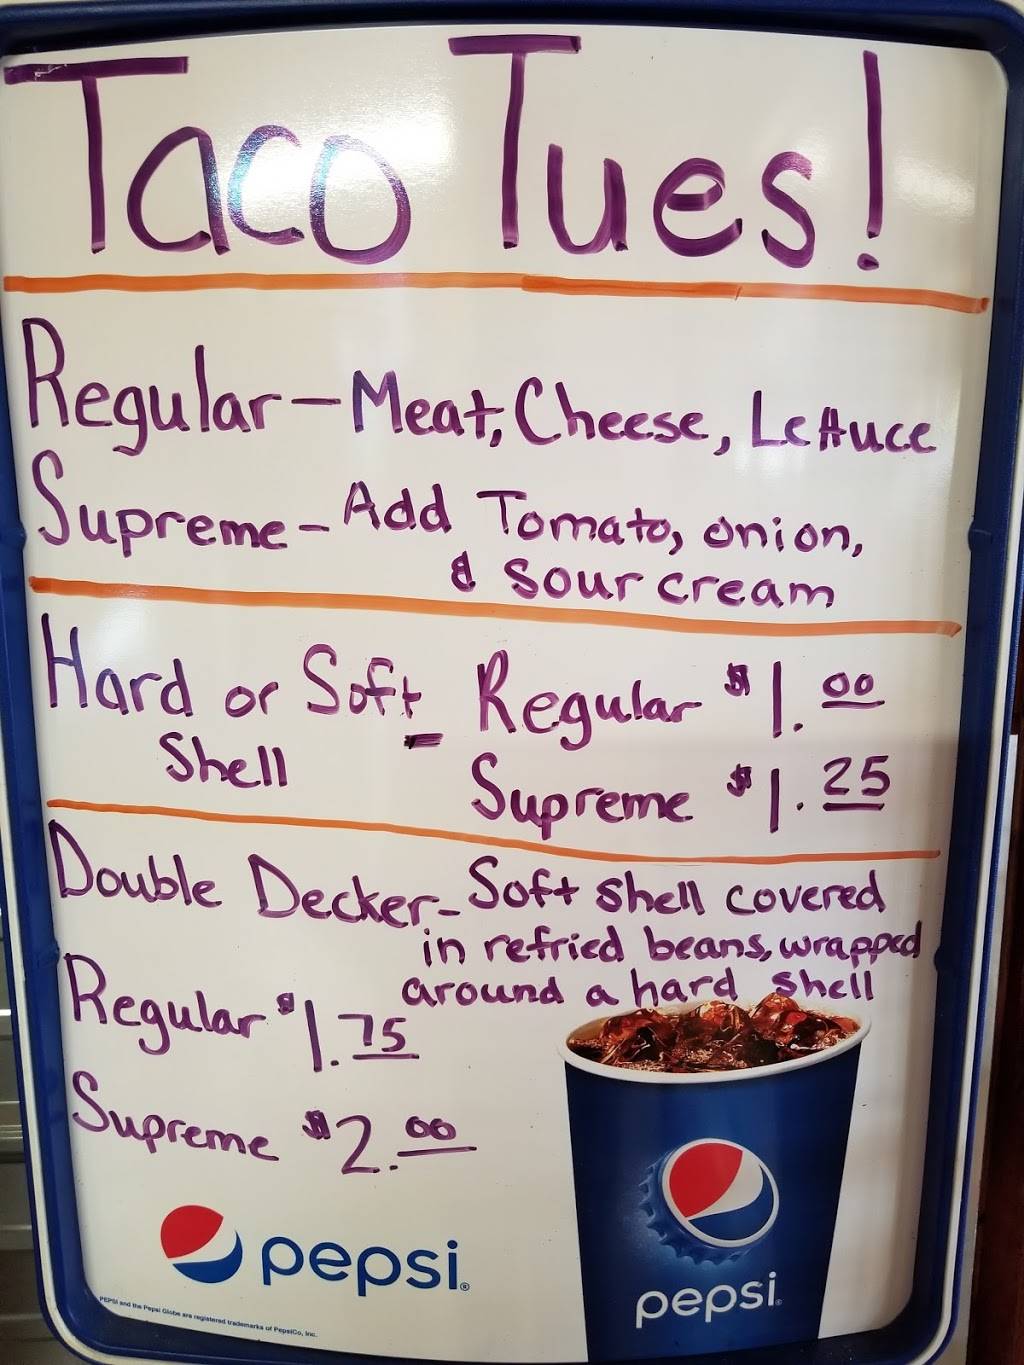 Taco Tues!
Regular - Meat, Cheese, Lettuce
Supreme - Add Tomato, onion,
& sour cream
Hard or Soft - Regular $1.00
Shell
Supreme $1.25
Double Decker - Soft shell covered
in refried beans, wrapped
around a hard shell
Regular $1.75
Supreme $2.00
pepsi®
pepsi.
PEPSI and the Pepsi Globe are registered trademarks of PepsiCo, Inc.